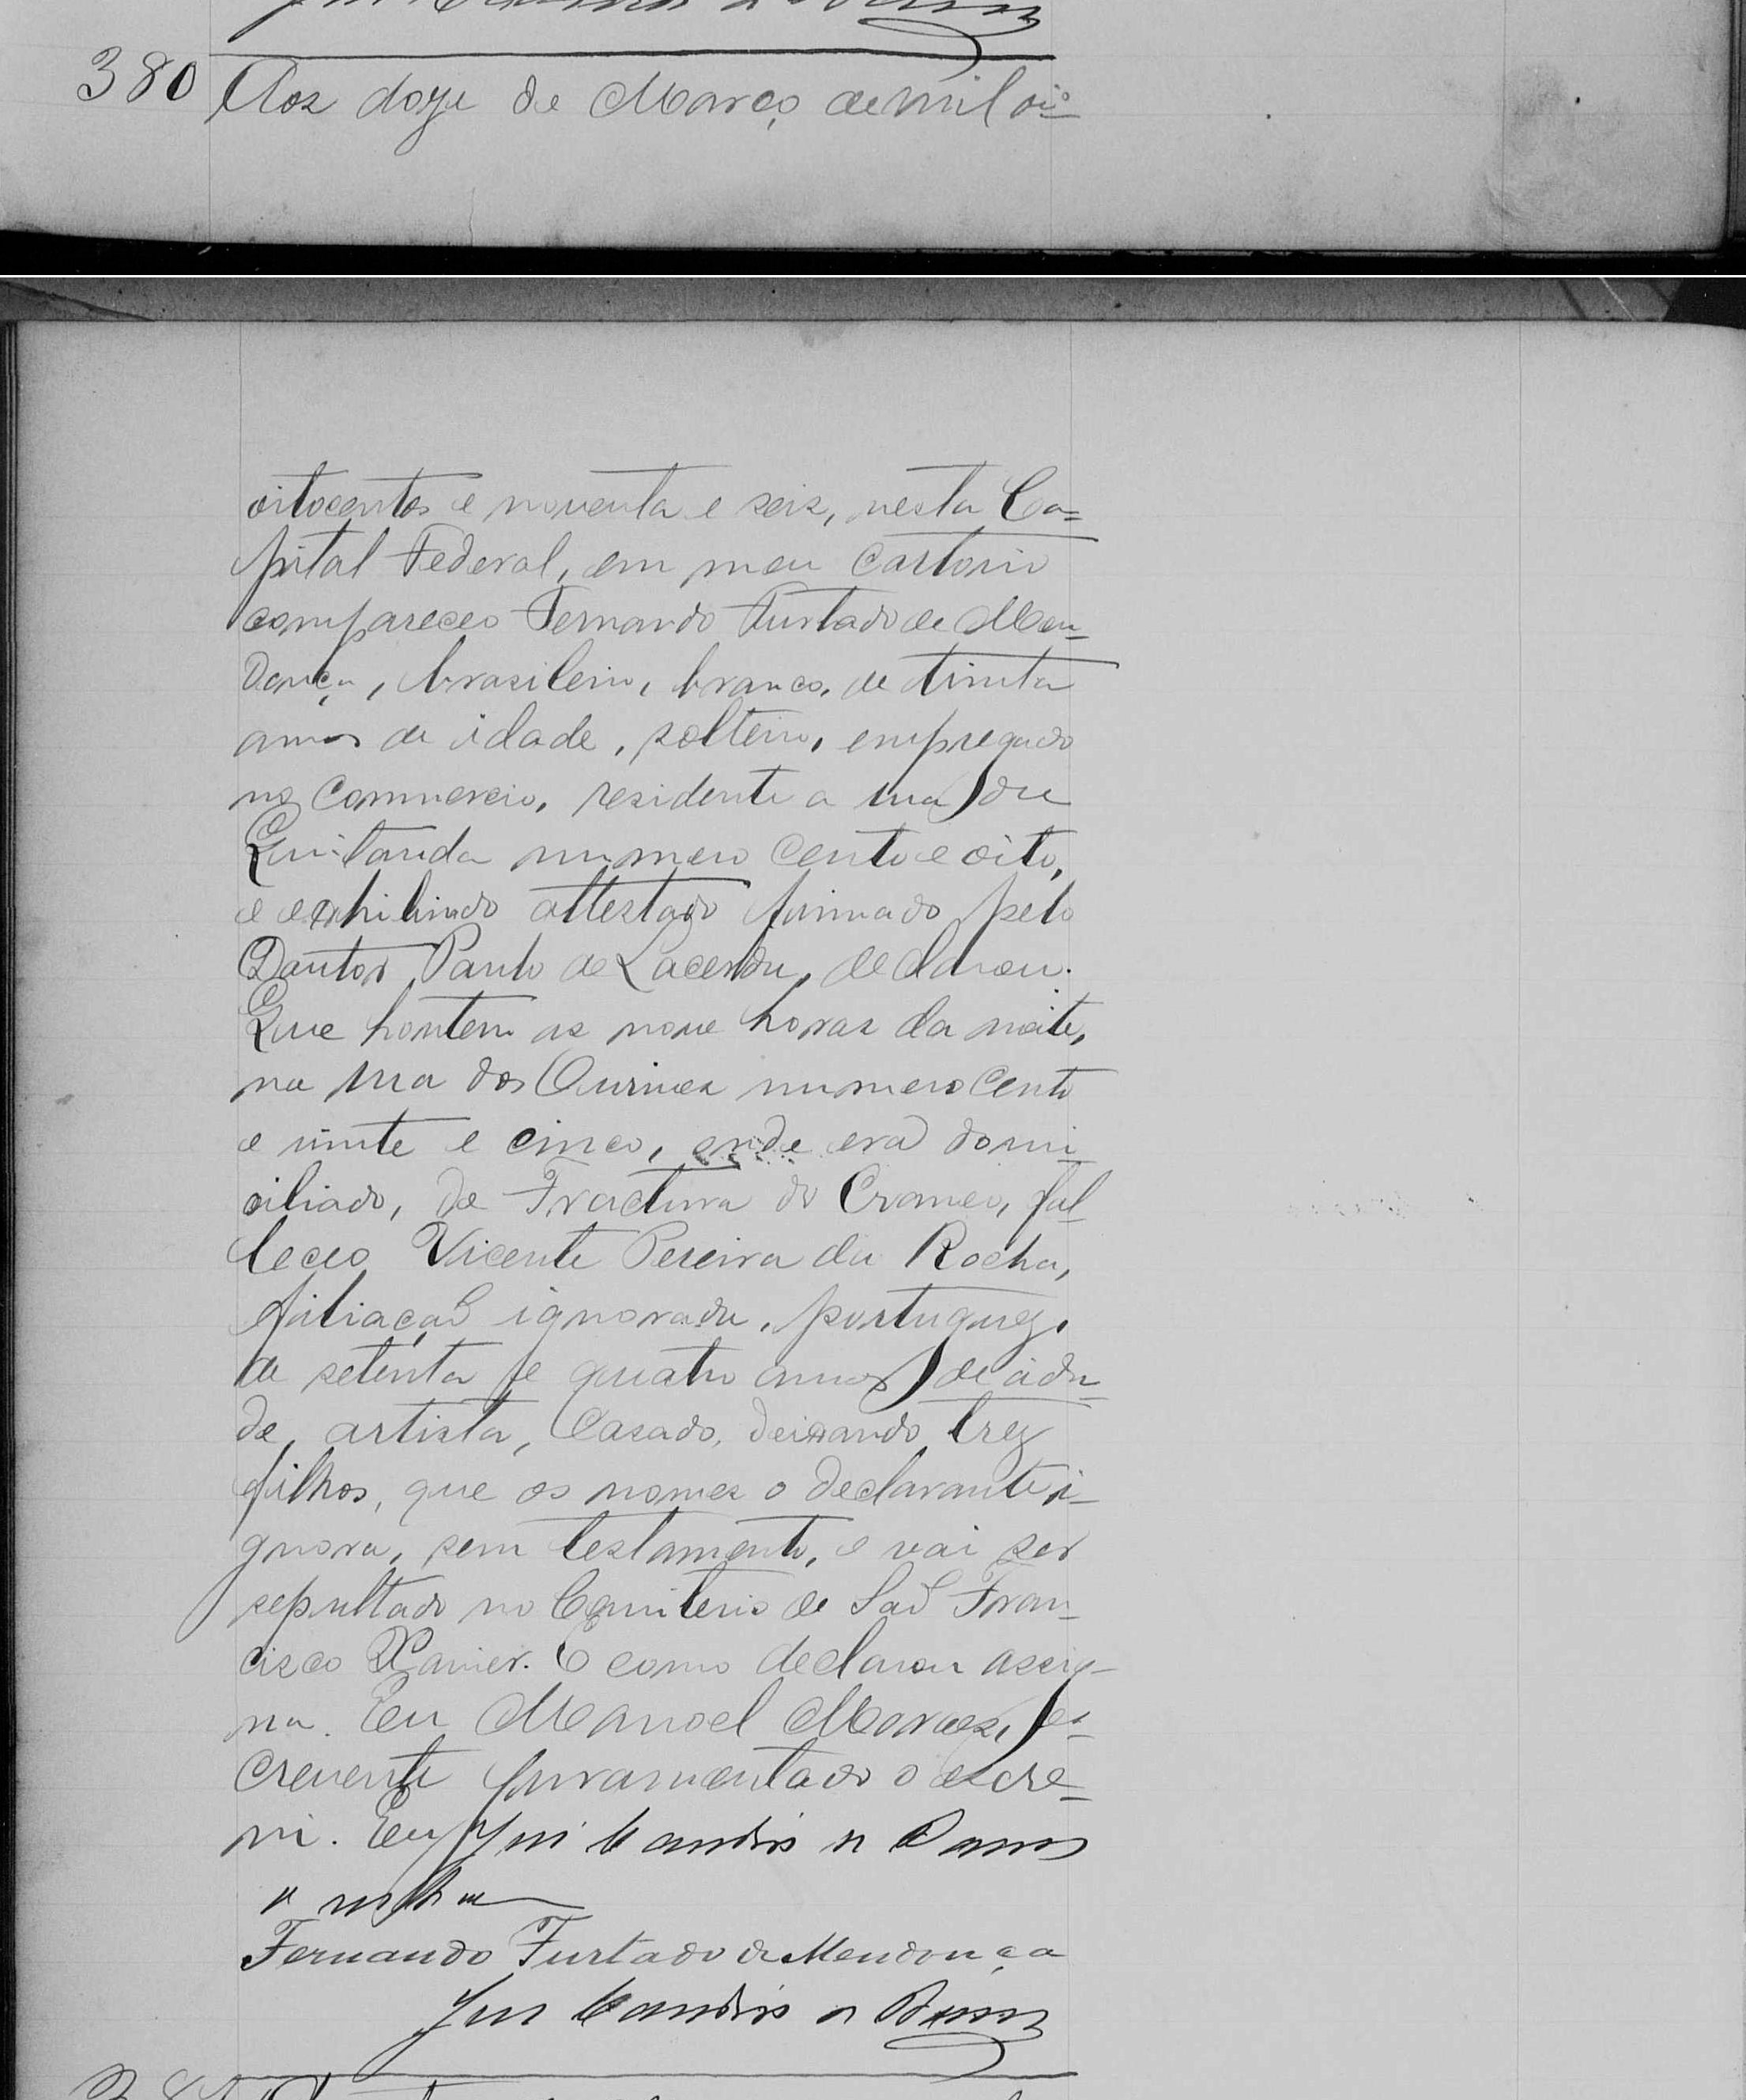 380 Aos doze de Março de mil oi=
oitocentos e noventa e seis, nesta Ca=
pital Federal, em meu Cartorio
compareceo Fernando Furtado de Men-
donça, brasileiro, branco, de trinta
annos de idade, solteiro, empregado
no Commercio, residente a rua da
Quitanda numero cento e oito,
e exhibindo attestado firmado pelo
Doutor Paulo de Lacerda, declarou.
Que hontem as nove horas da noite,
na rua dos Ourives numero cento
e vinte e cinco, onde era domi-
ciliado, de Fractura do Craneo, fal-
leceo Vicente Pereira da Rocha,
filiação ignorada, portuguez,
de setenta e quatro annos de ida-
de, artista, Casado, deixando trez
filhos, que os nomes o declarante i-
gnora, sem testamento, e vai ser
sepultado no Cemiterio de São Fran-
cisco Xavier. E como declarou assig-
na. Eu Manoel Moraes, es-
crevente juramentado o escre-
vi. Eu
Fernando Furtado de Mendonça